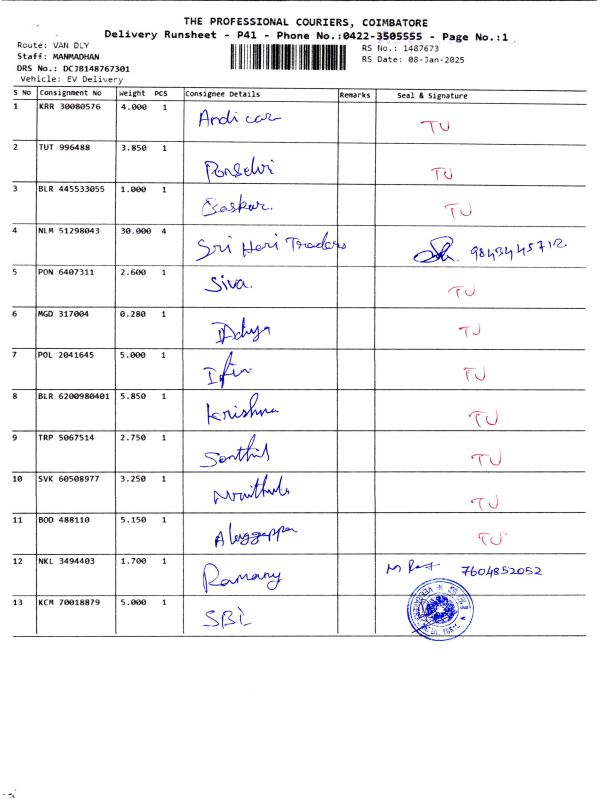 THE PROFESSIONAL COURIERS, COIMBATORE
Delivery Runsheet - P41 - Phone No.:0422-3505555 - Page No.:1
Route: VAN DLY
RS No.: 1487673
Staff: MANMADHAN
RS Date: 08-Jan-2025
DRS No.: DCJB148767301
Vehicle: EV Delivery
S No Consignment No Weight PCS Consignee Details Remarks Seal & Signature
1 KRR 30080576 4.000 1 Andi car TU
2 TUT 996488 3.850 1 Ponselvi TU
3 BLR 445533055 1.000 1 Baskar. TU
4 NLM 51298043 30.000 4 Sri Hari Traders 9843445712
5 PON 6407311 2.600 1 Siva. TU
6 MGD 317004 0.280 1 TU
7 POL 2041645 5.000 1 TU
8 BLR 6200980401 5.850 1 Krishna TU
9 TRP 5067514 2.750 1 Senthil TU
10 SVK 60508977 3.250 1 TU
11 BOD 488110 5.150 1 Alaggappa TU
12 NKL 3494403 1.700 1 Ramany 7604852052
13 KCM 70018879 5.000 1 SBI